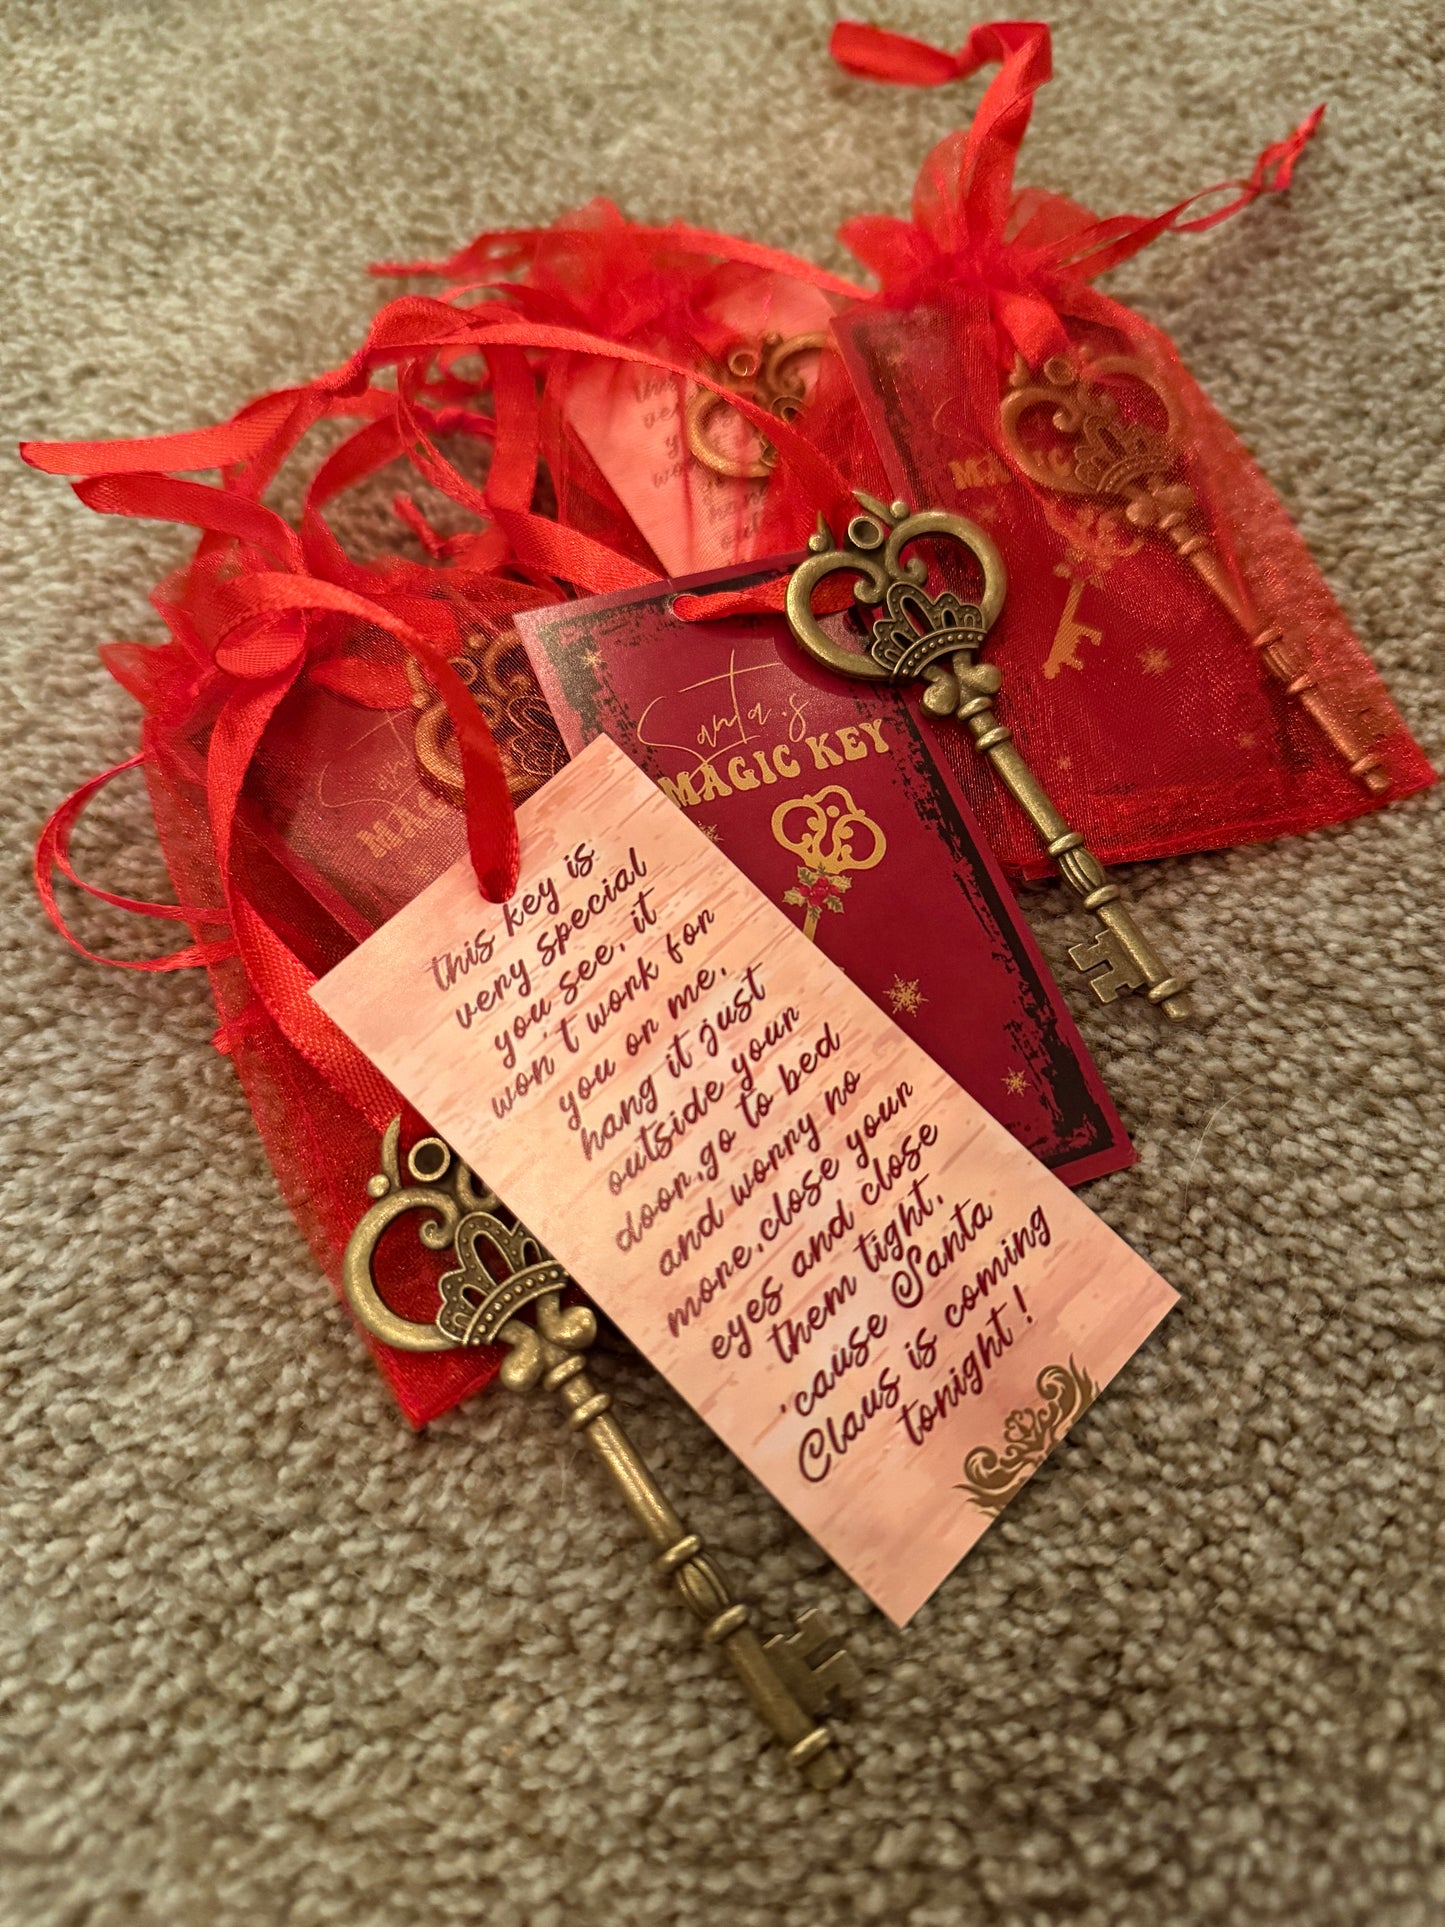 this key is
very special
you see, it
won't work for
you or me,
hang it just
outside your
door,go to bed
and worry no
more,close your
eyes and close
them tight,
'cause Santa
Claus is coming
tonight !
Santa's
MAGIC KEY
MAGIC